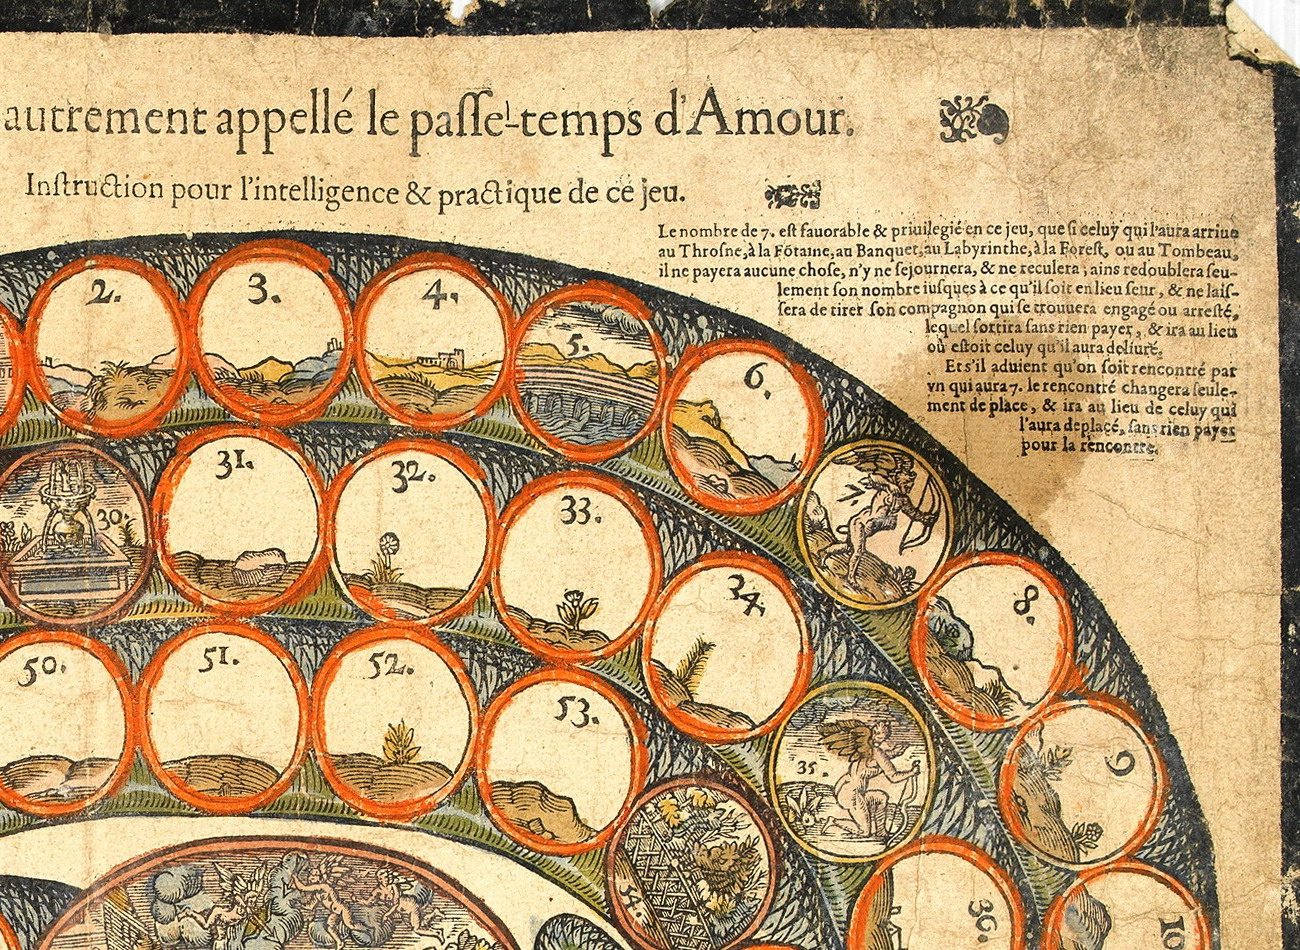 autrement appellé le paſſe-temps d'Amour.
Inſtruction pour l'intelligence & practique de ce jeu.
Le nombre de 7. eſt fauorable & priuilegié en ce jeu, que ſi celuy qui l'aura arriue
au Throſne, à la Fõtaine, au Banquet, au Labyrinthe, à la Foreſt, ou au Tombeau,
il ne payera aucune choſe, n'y ne ſejournera, & ne reculera; ains redoublera ſeu-
lement ſon nombre iuſques à ce qu'il ſoit en lieu ſeur, & ne laiſ-
ſera de tirer ſon compagnon qui ſe trouuera engagé ou arreſté,
lequel ſortira ſans rien payer, & ira au lieu
où eſtoit celuy qu'il aura deliuré.
Et s'il aduient qu'on ſoit rencontré par
vn qui aura 7. le rencontré changera ſeule-
ment de place, & ira au lieu de celuy qui
l'aura deplacé, ſans rien payer
pour la rencontre.
2.
3.
4.
5.
6.
7
8.
9
10
30.
31.
32.
33.
34.
35.
36.
50.
51.
52.
53.
54.